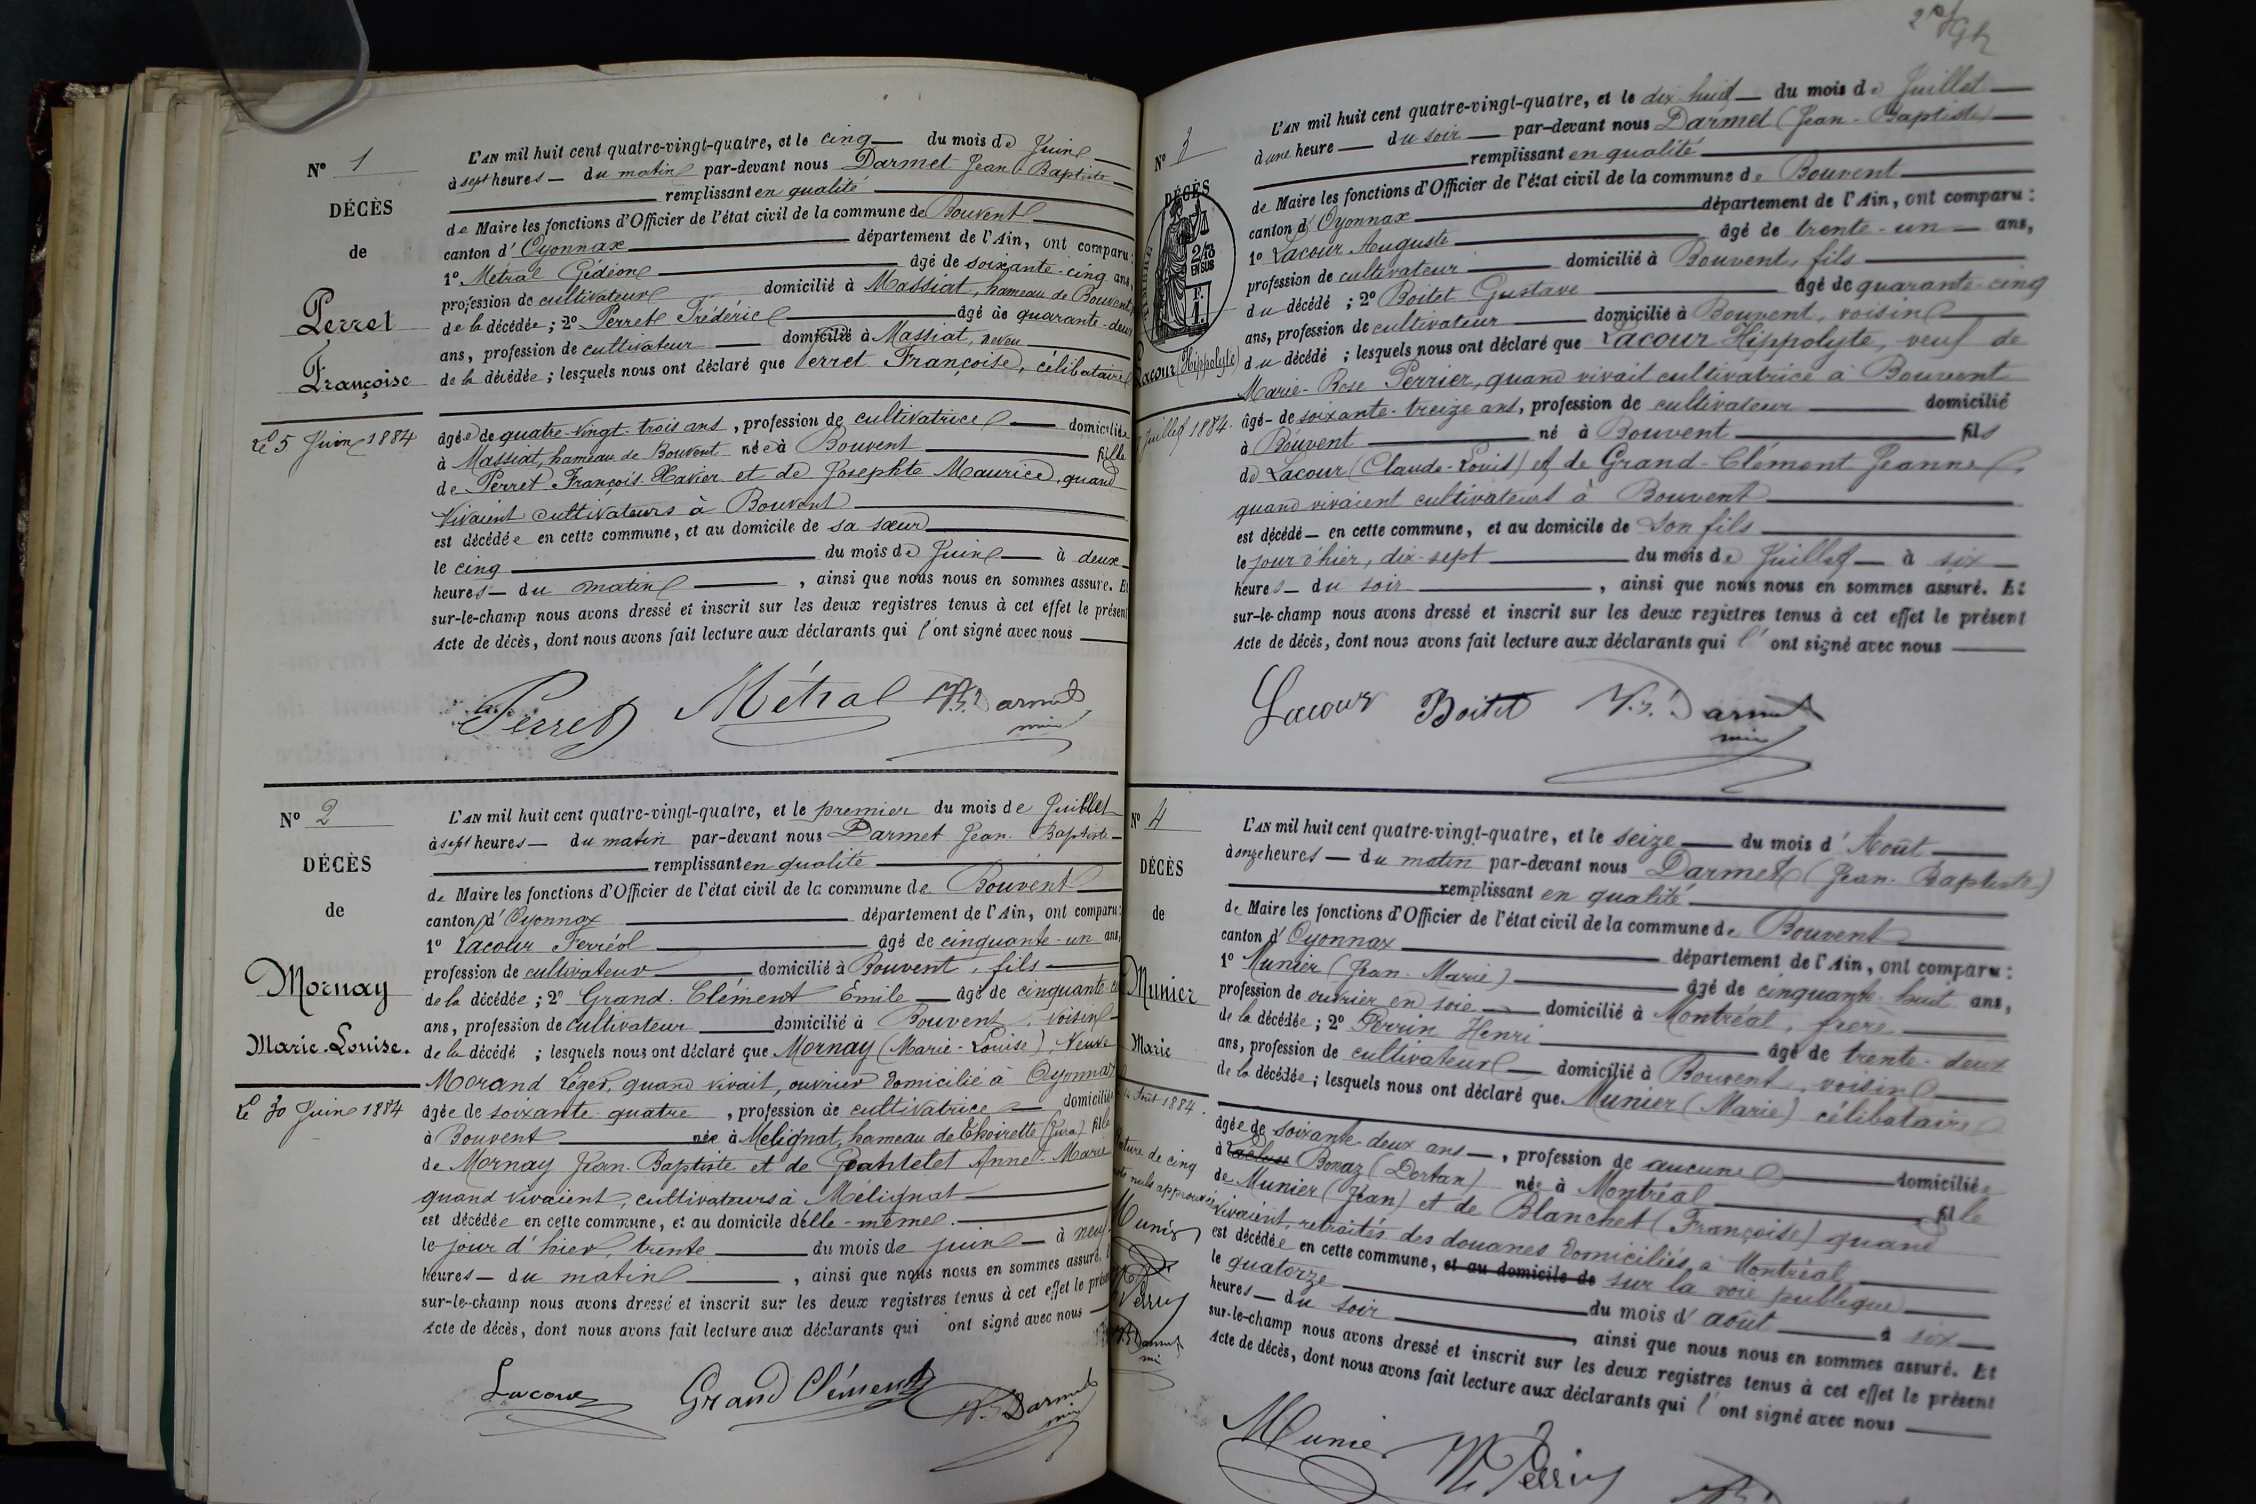 Nº 1
DÉCÈS
de
Perret
Françoise
Le 5 Juin 1884
L'AN mil huit cent quatre-vingt-quatre, et le cinq du mois de Juin
à sept heures du matin par-devant nous Darmet Jean-Baptiste
remplissant en qualité
de Maire les fonctions d'Officier de l'état civil de la commune de Bouvent
canton d'Oyonnax département de l'Ain, ont comparu :
1º Métral Gédéon âgé de soixante-cinq ans,
profession de cultivateur domicilié à Massiat, hameau de Bouvent
de la décédée ; 2º Perret Frédéric âgé de quarante-deux
ans, profession de cultivateur domicilié à Massiat, neveu
de la décédée ; lesquels nous ont déclaré que Perret Françoise, célibataire
âgée de quatre-vingt-trois ans, profession de cultivatrice domiciliée
à Massiat, hameau de Bouvent née à Bouvent fille
de Perret François-Xavier et de Josephte Maurice, quand
vivaient cultivateurs à Bouvent
est décédée en cette commune, et au domicile de sa sœur
le cinq du mois de Juin à deux
heures du matin, ainsi que nous nous en sommes assuré. Et
sur-le-champ nous avons dressé et inscrit sur les deux registres tenus à cet effet le présent
Acte de décès, dont nous avons fait lecture aux déclarants qui l'ont signé avec nous
Perret Métral Darmet
Nº 2
DÉCÈS
de
Mornay
Marie-Louise.
Le 30 Juin 1884
L'AN mil huit cent quatre-vingt-quatre, et le premier du mois de Juillet
à sept heures du matin par-devant nous Darmet Jean-Baptiste
remplissant en qualité
de Maire les fonctions d'Officier de l'état civil de la commune de Bouvent
canton d'Oyonnax département de l'Ain, ont comparu :
1º Lacour Ferréol âgé de cinquante-un ans,
profession de cultivateur domicilié à Bouvent, fils
de la décédée ; 2º Grand-Clément Emile âgé de cinquante
ans, profession de cultivateur domicilié à Bouvent, voisin
de la décédé ; lesquels nous ont déclaré que Mornay (Marie-Louise), Veuve
Morand Léger, quand vivait, ouvrier domicilié à Oyonnax
âgée de soixante-quatre, profession de cultivatrice domiciliée
à Bouvent née à Mélignat, hameau de Thoirette (Jura) fille
de Mornay Jean-Baptiste et de Anne-Marie
quand vivaient, cultivateurs à Mélignat
est décédée en cette commune, et au domicile d'elle-même.
le jour d'hier, trente du mois de juin à neuf
heures du matin, ainsi que nous nous en sommes assuré.
sur-le-champ nous avons dressé et inscrit sur les deux registres tenus à cet effet le présent
Acte de décès, dont nous avons fait lecture aux déclarants qui ont signé avec nous
Lacour Grand Clément Darmet
Nº 3
DÉCÈS
2/10
EN SUS
Lacour (Hippolyte)
Juillet 1884.
L'AN mil huit cent quatre-vingt-quatre, et le dix-huit du mois de Juillet
à une heure du soir par-devant nous Darmet (Jean-Baptiste)
remplissant en qualité
de Maire les fonctions d'Officier de l'état civil de la commune de Bouvent
canton d'Oyonnax département de l'Ain, ont comparu :
1º Lacour Auguste âgé de trente-un ans,
profession de cultivateur domicilié à Bouvent, fils
du décédé ; 2º Boitet Gustave âgé de quarante-cinq
ans, profession de cultivateur domicilié à Bouvent, voisin
du décédé ; lesquels nous ont déclaré que Lacour Hippolyte, veuf de
Marie-Rose Perrier, quand vivait cultivatrice à Bouvent
âgé de soixante-treize ans, profession de cultivateur domicilié
à Bouvent né à Bouvent fils
de Lacour (Claude-Louis) et de Grand-Clément Jeanne,
quand vivaient cultivateurs à Bouvent
est décédé en cette commune, et au domicile de son fils
le jour d'hier, dix-sept du mois de Juillet à six
heures du soir, ainsi que nous nous en sommes assuré. Et
sur-le-champ nous avons dressé et inscrit sur les deux registres tenus à cet effet le présent
Acte de décès, dont nous avons fait lecture aux déclarants qui l'ont signé avec nous
Lacour Boitet Darmet
Nº 4
DÉCÈS
de
Munier
Marie
Août 1884.
Munier
Perrin
Darmet
L'AN mil huit cent quatre-vingt-quatre, et le seize du mois d'Août
à onze heures du matin par-devant nous Darmet (Jean-Baptiste)
remplissant en qualité
de Maire les fonctions d'Officier de l'état civil de la commune de Bouvent
canton d'Oyonnax département de l'Ain, ont comparu :
1º Munier (Jean-Marie) âgé de cinquante-huit ans,
profession de ouvrier en soie domicilié à Montréal, frère
de la décédée ; 2º Perrin Henri âgé de trente-deux
ans, profession de cultivateur domicilié à Bouvent, voisin
de la décédée ; lesquels nous ont déclaré que Munier (Marie) célibataire
âgée de soixante-deux ans, profession de aucune domiciliée
à Bonaz (Dortan) née à Montréal fille
de Munier (Jean) et de Blanchet (Françoise) quand
vivaient, retraités des douanes domiciliés à Montréal
est décédée en cette commune, et au domicile de sur la voie publique
le quatorze du mois d'août à six
heures du soir, ainsi que nous nous en sommes assuré. Et
sur-le-champ nous avons dressé et inscrit sur les deux registres tenus à cet effet le présent
Acte de décès, dont nous avons fait lecture aux déclarants qui l'ont signé avec nous
Munier Perrin